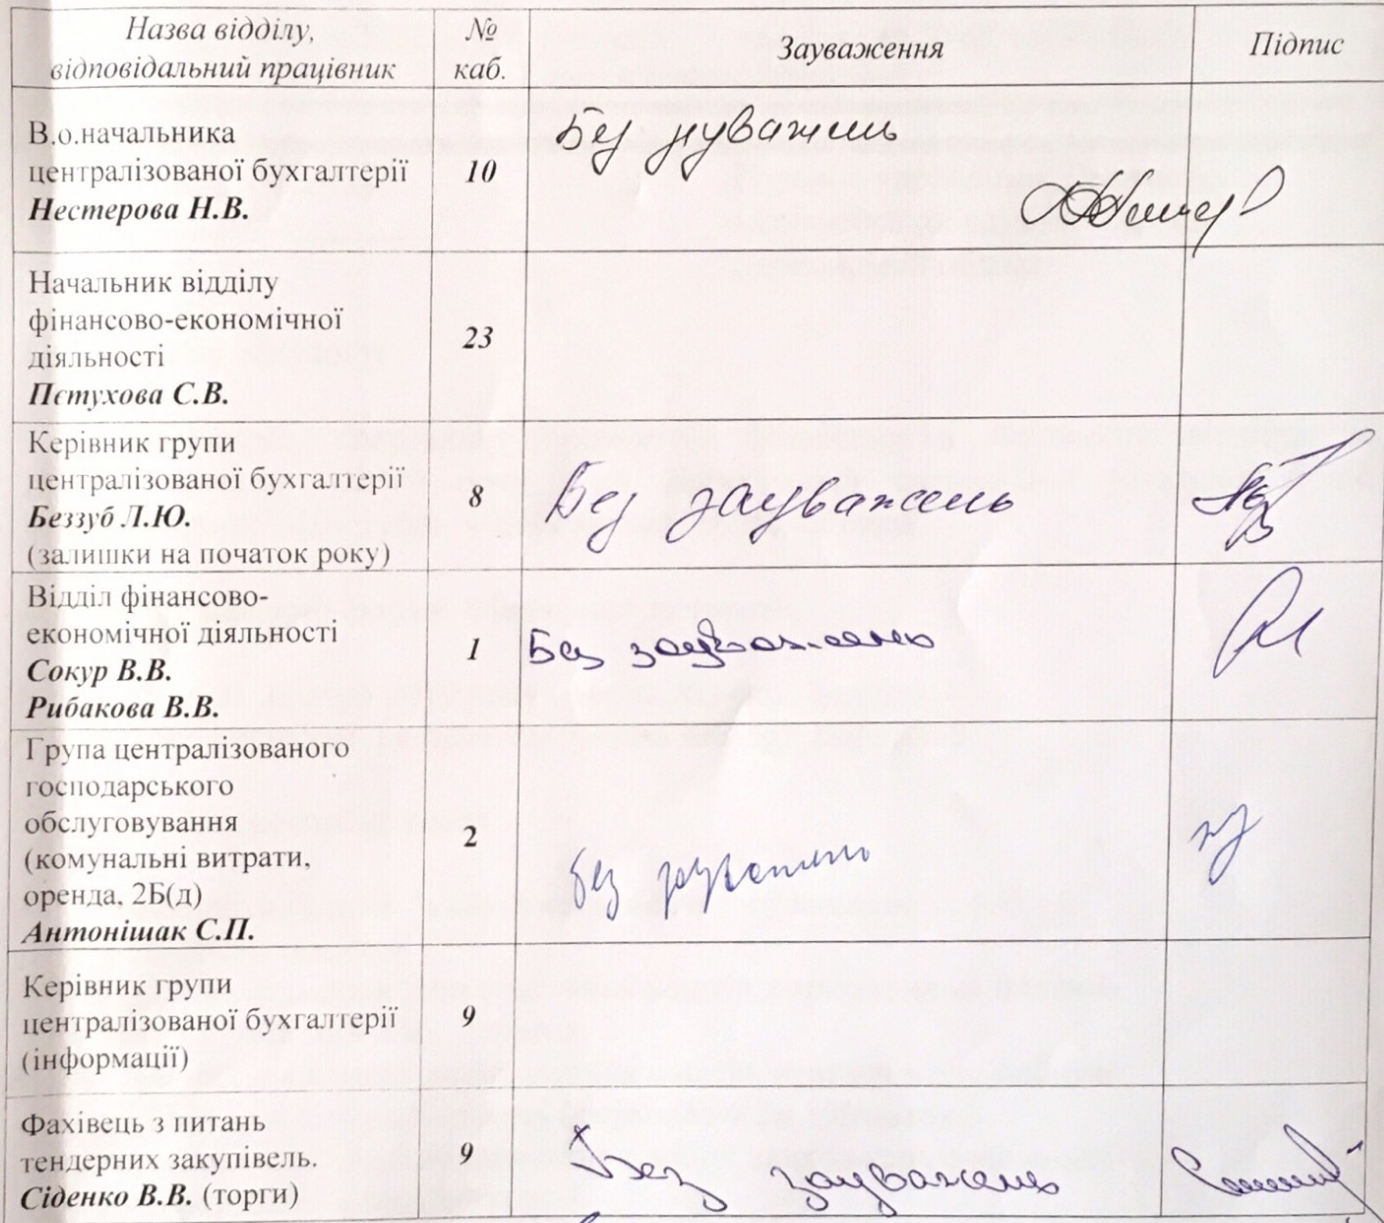 Назва відділу,
відповідальний працівник
№
каб.
Зауваження
Підпис
В.о.начальника
централізованої бухгалтерії
Нестерова Н.В.
10
Без зауважень
Начальник відділу
фінансово-економічної
діяльності
Пєтухова С.В.
23
Керівник групи
централізованої бухгалтерії
Беззуб Л.Ю.
(залишки на початок року)
8
Без зауважень
Відділ фінансово-
економічної діяльності
Сокур В.В.
Рибакова В.В.
1
Без зауважень
Група централізованого
господарського
обслуговування
(комунальні витрати,
оренда, 2Б(д)
Антонішак С.П.
2
без зауважень
Керівник групи
централізованої бухгалтерії
(інформації)
9
Фахівець з питань
тендерних закупівель.
Сіденко В.В. (торги)
9
Без зауважень